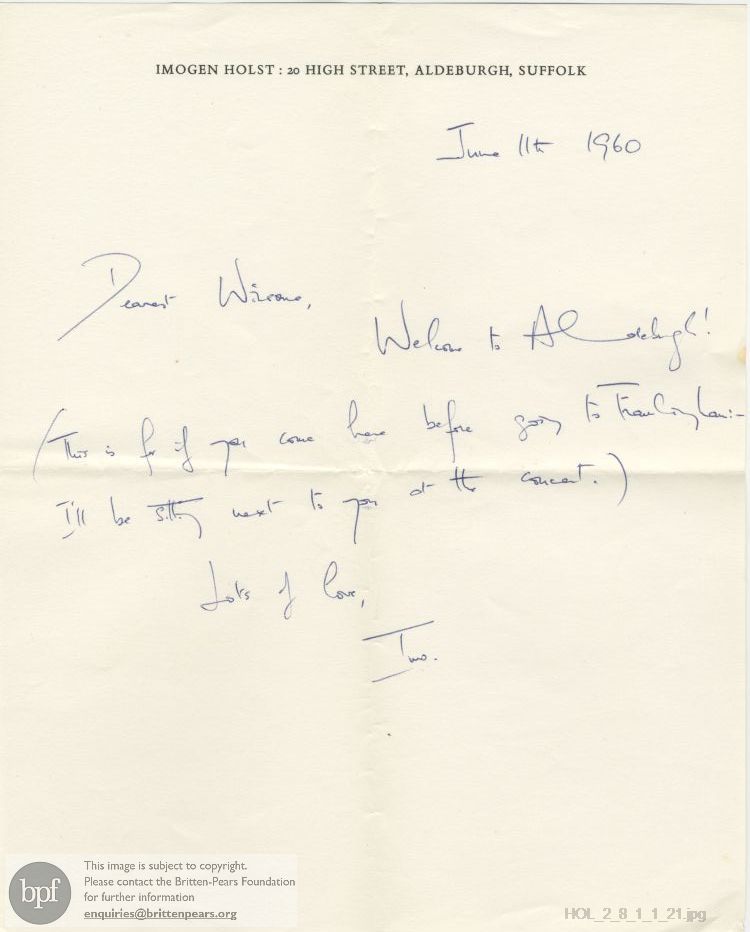 IMOGEN HOLST : 20 HIGH STREET, ALDEBURGH, SUFFOLK
June 11th 1960
Dearest
Welcome to Aldeburgh!
(This is for if you come here before going to Framlingham:-
I'll be sitting next to you at the concert.)
Lots of love,
Imo.
bpf
This image is subject to copyright.
Please contact the Britten-Pears Foundation
for further information
enquiries@brittenpears.org
HOL_2_8_1_1_21.jpg